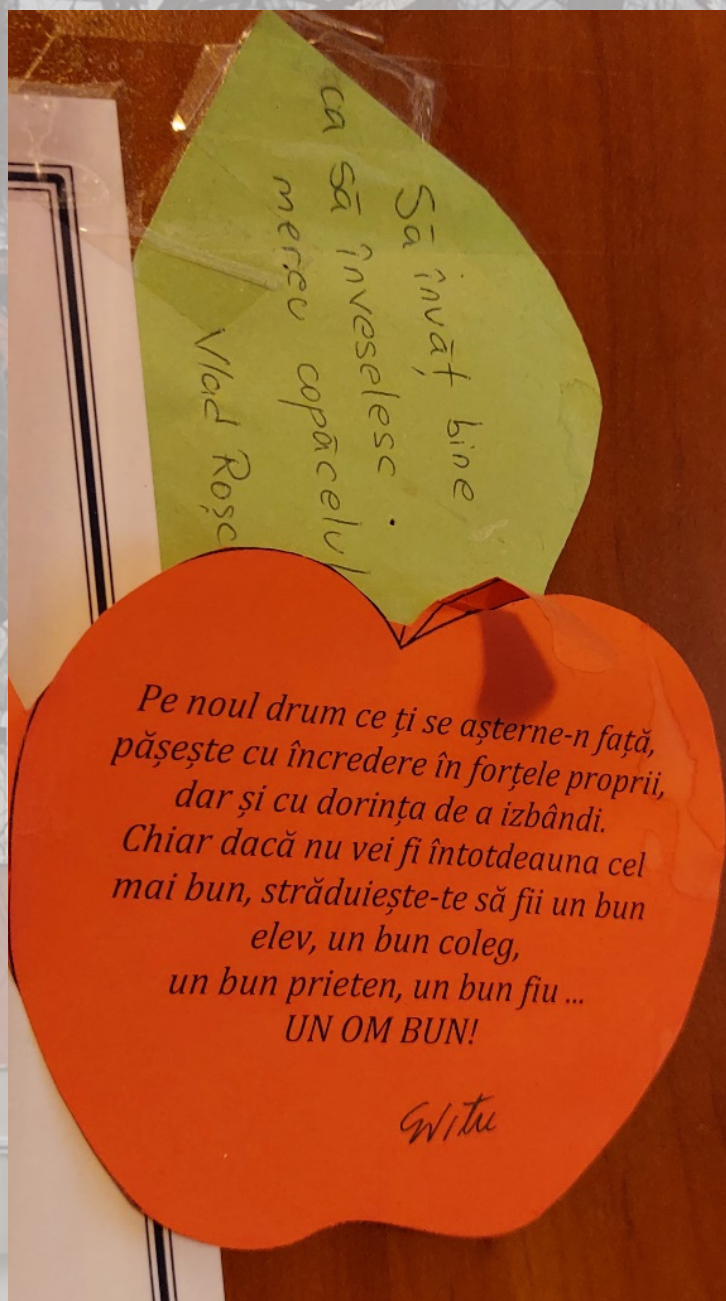 Să învăț bine
ca să înveselesc
mereu copăcelul
Vlad Roșc
Pe noul drum ce ți se așterne-n față,
pășește cu încredere în forțele proprii,
dar și cu dorința de a izbândi.
Chiar dacă nu vei fi întotdeauna cel
mai bun, străduiește-te să fii un bun
elev, un bun coleg,
un bun prieten, un bun fiu ...
UN OM BUN!